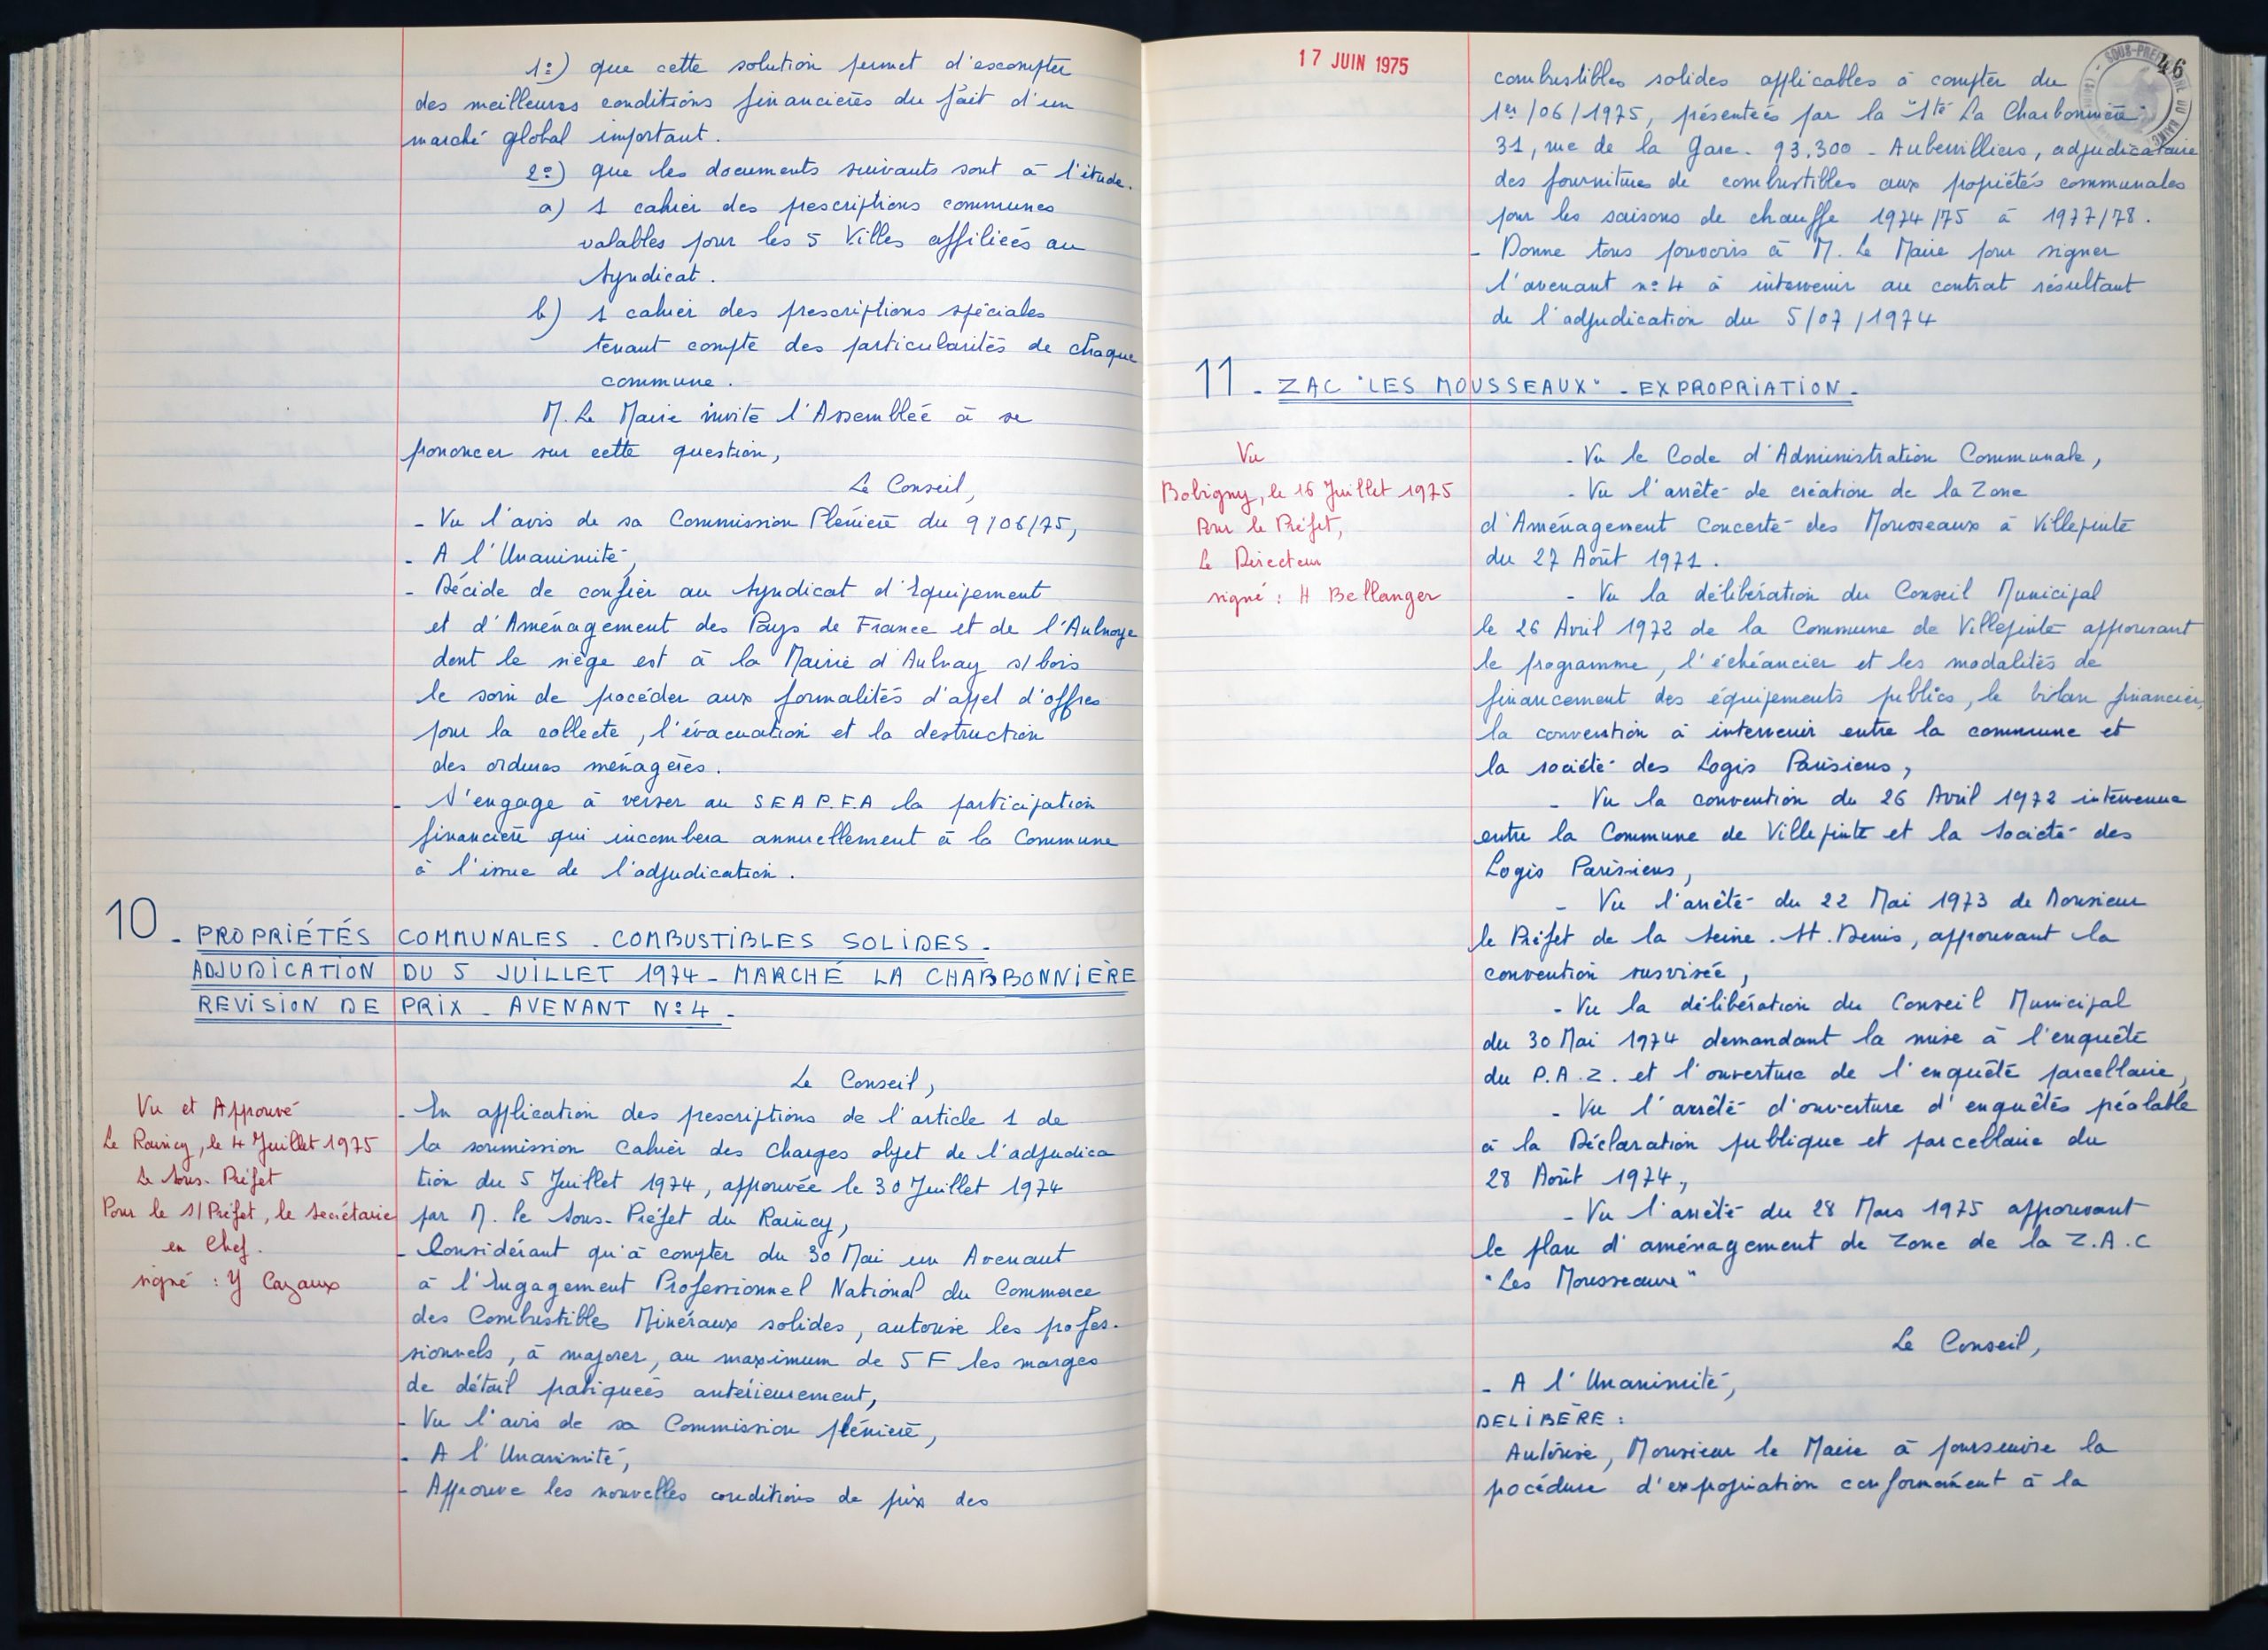 1°) que cette solution permet d'escompter
des meilleures conditions financières du fait d'un
marché global important.
2°) que les documents suivants sont à l'étude.
a) 1 cahier des prescriptions communes
valables pour les 5 Villes affiliées au
Syndicat.
b) 1 cahier des prescriptions spéciales
tenant compte des particularités de chaque
commune.
M. Le Maire invite l'Assemblée à se
prononcer sur cette question,
Le Conseil,
- Vu l'avis de sa Commission Plénière du 9/06/75,
- A l'Unanimité,
- Décide de confier au Syndicat d'Equipement
et d'Aménagement des Pays de France et de l'Aulnoye
dont le siège est à la Mairie d'Aulnay s/bois
le soin de procéder aux formalités d'appel d'offres
pour la collecte, l'évacuation et la destruction
des ordures ménagères.
- S'engage à verser au S E A P.F.A la participation
financière qui incombera annuellement à la Commune
à l'issue de l'adjudication.
10 - PROPRIÉTÉS COMMUNALES - COMBUSTIBLES SOLIDES -
ADJUDICATION DU 5 JUILLET 1974 - MARCHÉ LA CHARBONNIÈRE
REVISION DE PRIX - AVENANT N° 4 -
Le Conseil,
Vu et Approuvé
Le Raincy, le 4 Juillet 1975
Le Sous-Préfet
Pour le S/Préfet, le Secrétaire
en Chef.
signé : Y Cazaux
- En application des prescriptions de l'article 1 de
la soumission Cahier des Charges objet de l'adjudica
tion du 5 Juillet 1974, approuvée le 30 Juillet 1974
par M. le Sous-Préfet du Raincy,
- Considérant qu'à compter du 30 Mai un Avenant
à l'Engagement Professionnel National du Commerce
des Combustibles Minéraux solides, autorise les profes-
sionnels, à majorer, au maximum de 5 F les marges
de détail pratiquées antérieurement,
- Vu l'avis de sa Commission plénière,
- A l'Unanimité,
- Approuve les nouvelles conditions de prix des
17 JUIN 1975
46
combustibles solides applicables à compter du
1er/06/1975, présentées par la "Sté La Charbonnière"
31, rue de la Gare - 93.300 - Aubervilliers, adjudicataire
des fournitures de combustibles aux propriétés communales
pour les saisons de chauffe 1974/75 à 1977/78.
- Donne tous pouvoirs à M. Le Maire pour signer
l'avenant n° 4 à intervenir au contrat résultant
de l'adjudication du 5/07/1974
11 - ZAC "LES MOUSSEAUX" - EXPROPRIATION -
Vu
Bobigny, le 16 Juillet 1975
Pour le Préfet,
Le Directeur
signé : H Bellanger
- Vu le Code d'Administration Communale,
- Vu l'arrêté de création de la Zone
d'Aménagement Concerté des Mousseaux à Villepinte
du 27 Août 1971.
- Vu la délibération du Conseil Municipal
le 26 Avril 1972 de la Commune de Villepinte approuvant
le programme, l'échéancier et les modalités de
financement des équipements publics, le bilan financier,
la convention à intervenir entre la commune et
la société des Logis Parisiens,
- Vu la convention du 26 Avril 1972 intervenue
entre la Commune de Villepinte et la Société des
Logis Parisiens,
- Vu l'arrêté du 22 Mai 1973 de Monsieur
le Préfet de la Seine-St-Denis, approuvant la
convention susvisée,
- Vu la délibération du Conseil Municipal
du 30 Mai 1974 demandant la mise à l'enquête
du P.A.Z. et l'ouverture de l'enquête parcellaire,
- Vu l'arrêté d'ouverture d'enquêtes préalable
à la Déclaration publique et parcellaire du
28 Août 1974,
- Vu l'arrêté du 28 Mars 1975 approuvant
le plan d'aménagement de Zone de la Z.A.C
"Les Mousseaux"
Le Conseil,
- A l'Unanimité,
DELIBÈRE :
Autorise, Monsieur le Maire à poursuivre la
procédure d'expropriation conformément à la